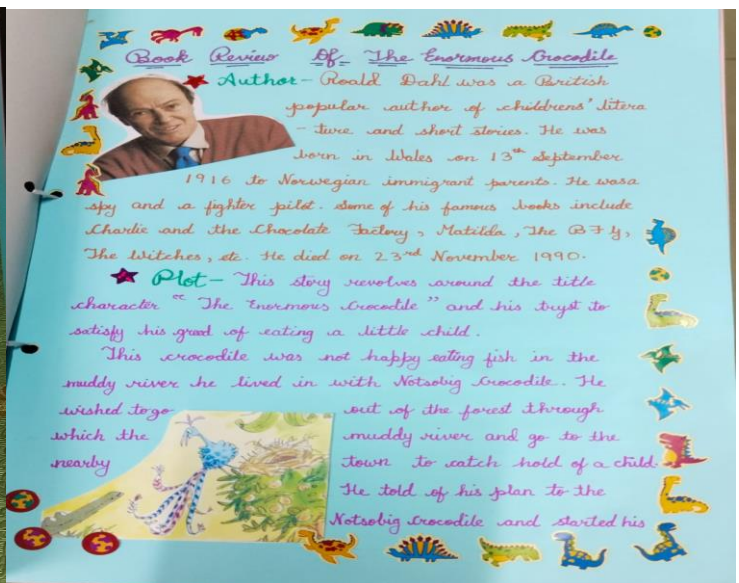 Book Review Of The Enormous Crocodile
Author - Roald Dahl was a British
popular author of childrens' litera
- ture and short stories. He was
born in Wales on 13th September
1916 to Norwegian immigrant parents. He was a
spy and a fighter pilot. Some of his famous books include
Charlie and the Chocolate Factory, Matilda, The BFG,
The Witches, etc. He died on 23rd November 1990.
Plot - This story revolves around the title
character "The Enormous Crocodile" and his tryst to
satisfy his greed of eating a little child.
This crocodile was not happy eating fish in the
muddy river he lived in with Notsobig Crocodile. He
wished to go out of the forest through
which the muddy river and go to the
nearby town to catch hold of a child.
He told of his plan to the
Notsobig Crocodile and started his